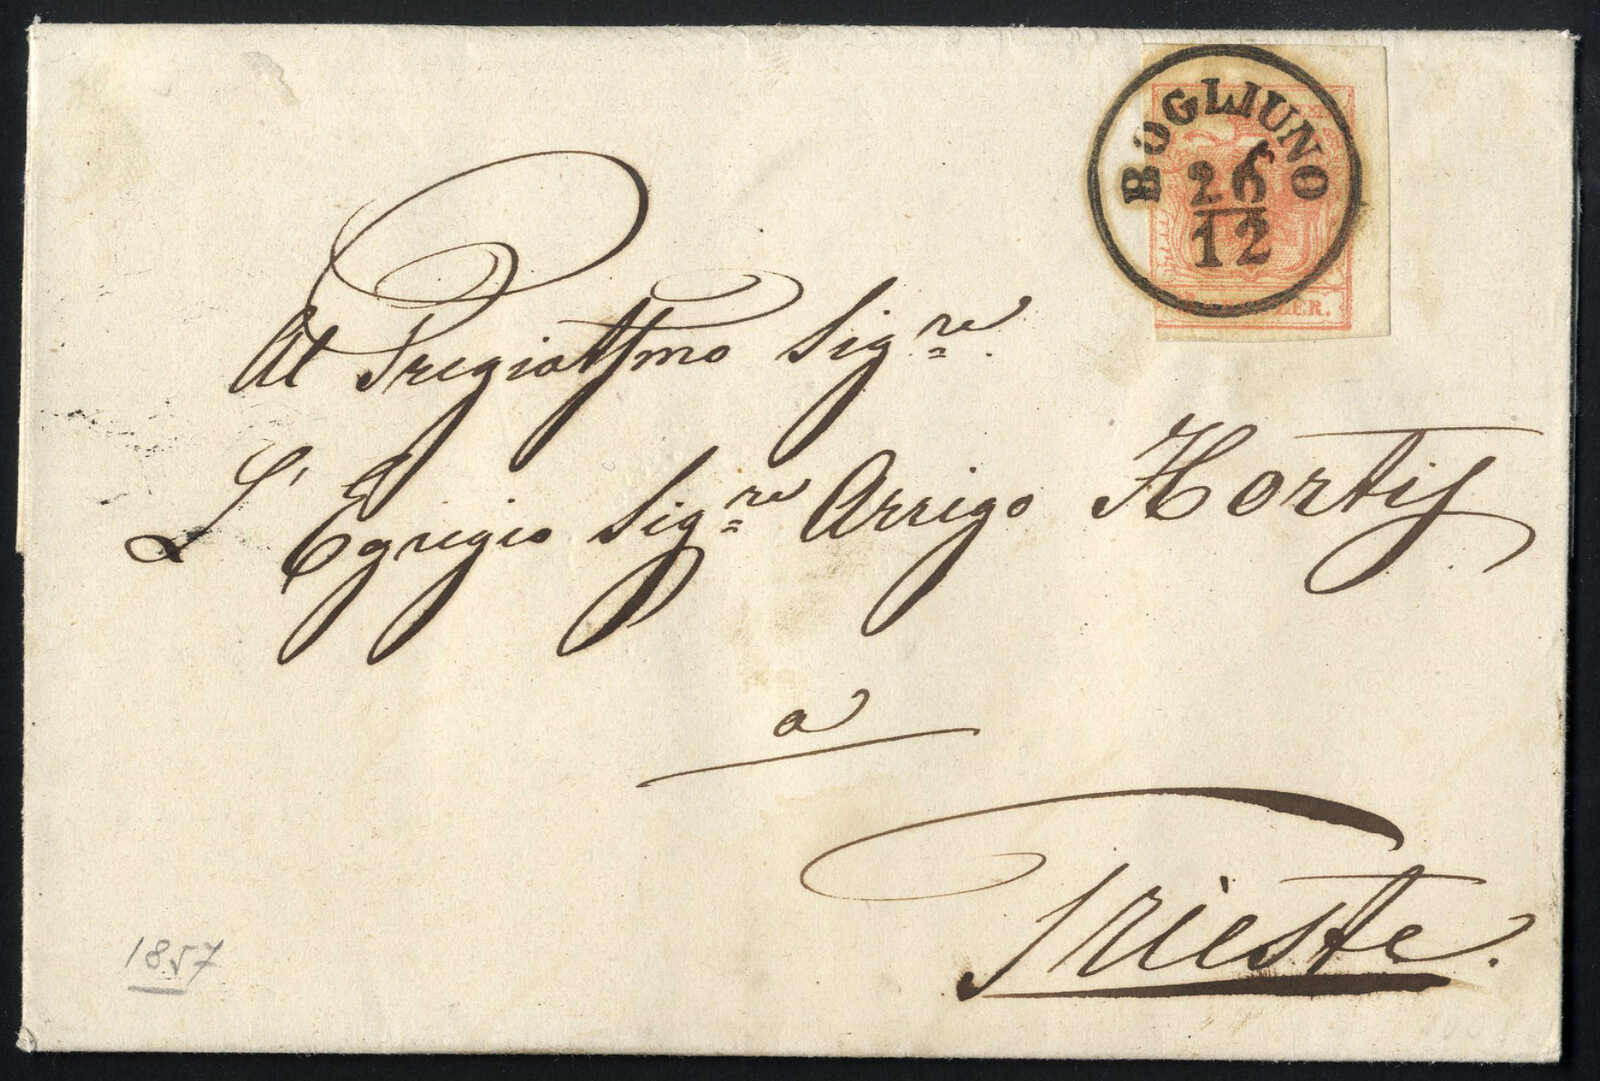 BOGLIUNO
26
12
ZER.
Al Pregiattmo Sigre
L'Egregio Sigre Arrigo Hortis
a
Trieste.
1857